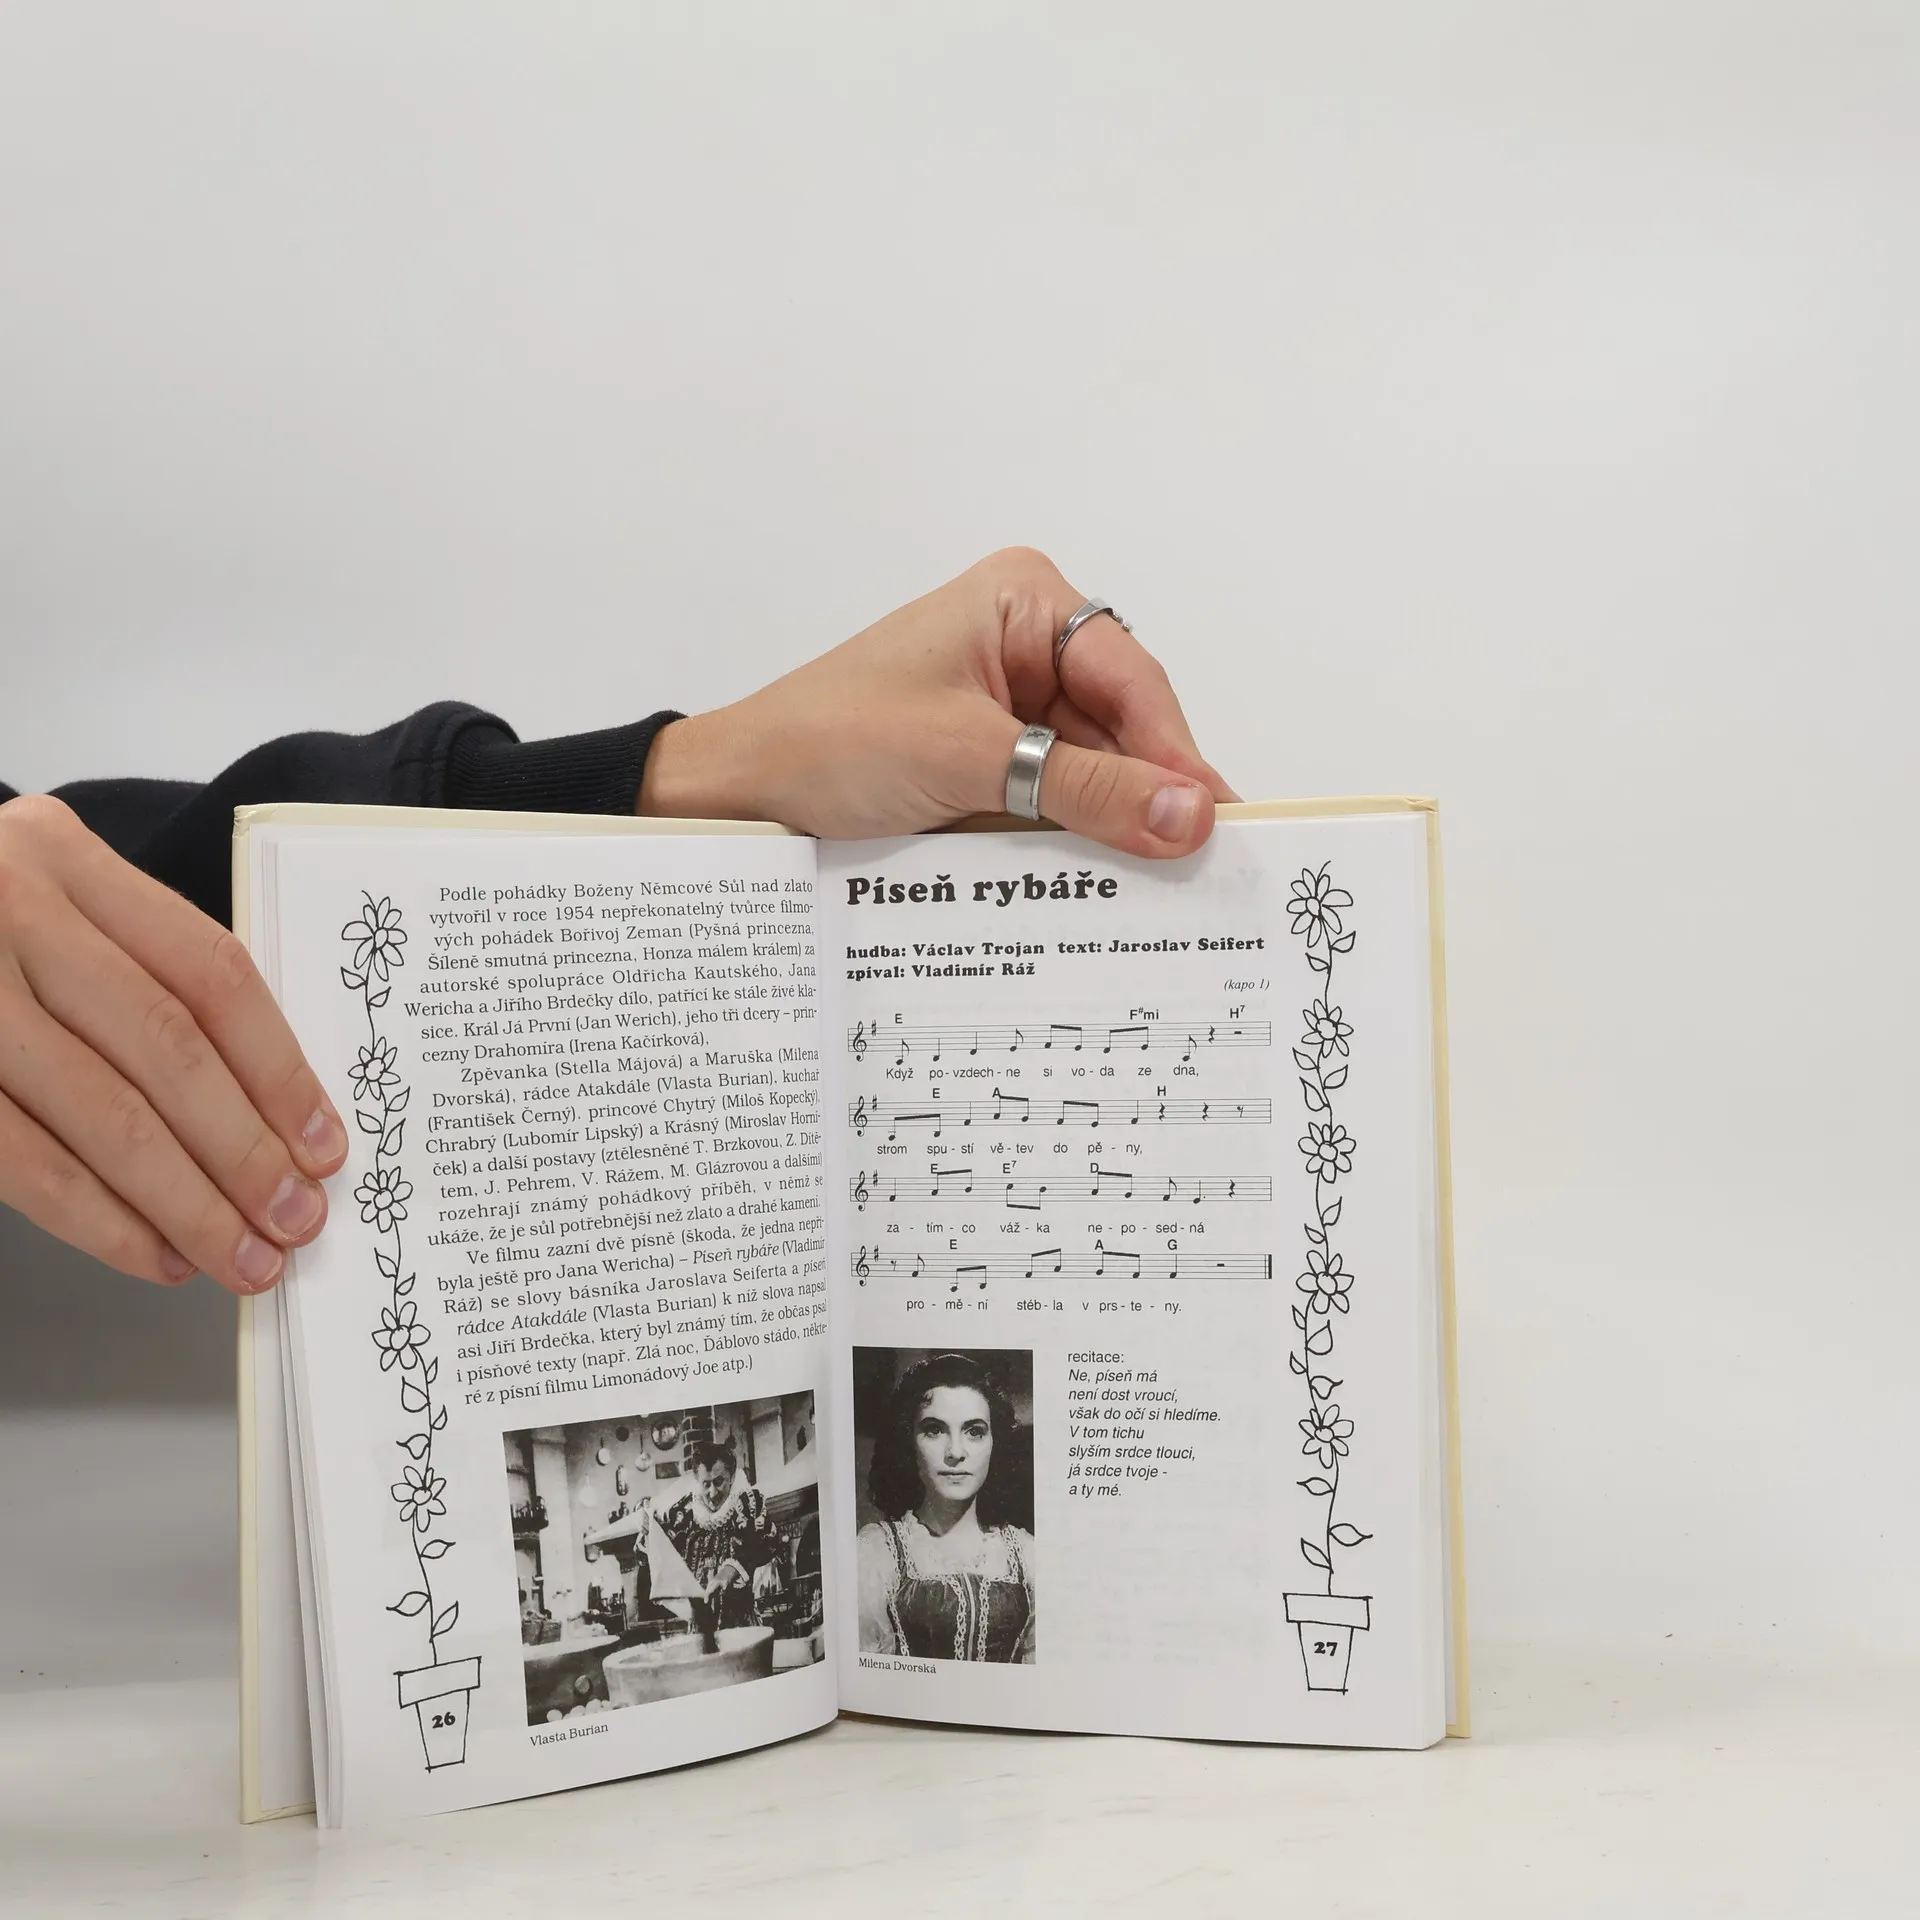 Podle pohádky Boženy Němcové Sůl nad zlato
vytvořil v roce 1954 nepřekonatelný tvůrce filmo-
vých pohádek Bořivoj Zeman (Pyšná princezna,
Šíleně smutná princezna, Honza málem králem) za
autorské spolupráce Oldřicha Kautského, Jana
Wericha a Jiřího Brdečky dílo, patřící ke stále živé kla-
sice. Král Já První (Jan Werich), jeho tři dcery – prin-
cezny Drahomíra (Irena Kačírková),
Zpěvanka (Stella Májová) a Maruška (Milena
Dvorská), rádce Atakdále (Vlasta Burian), kuchař
(František Černý), princové Chytrý (Miloš Kopecký),
Chrabrý (Lubomír Lipský) a Krásný (Miroslav Horní-
ček) a další postavy (ztělesněné T. Brzkovou, Z. Dítě-
tem, J. Pehrem, V. Rážem, M. Glázrovou a dalšími)
rozehrají známý pohádkový příběh, v němž se
ukáže, že je sůl potřebnější než zlato a drahé kamení.
Ve filmu zazní dvě písně (škoda, že jedna nepři-
byla ještě pro Jana Wericha) – Píseň rybáře (Vladimír
Ráž) se slovy básníka Jaroslava Seiferta a píseň
rádce Atakdále (Vlasta Burian) k níž slova napsal
asi Jiří Brdečka, který byl známý tím, že občas psal
i písňové texty (např. Zlá noc, Ďáblovo stádo, někte-
ré z písní filmu Limonádový Joe atp.)
Vlasta Burian
26
Píseň rybáře
hudba: Václav Trojan text: Jaroslav Seifert
zpíval: Vladimír Ráž
(kapo 1)
E F#mi H7
Když po - vzdech - ne si vo - da ze dna,
E A H
strom spu - stí vě - tev do pě - ny,
E E7 D
za - tím - co váž - ka ne - po - sed - ná
E A G
pro - mě - ní stéb - la v prs - te - ny.
recitace:
Ne, píseň má
není dost vroucí,
však do očí si hledíme.
V tom tichu
slyším srdce tlouci,
já srdce tvoje -
a ty mé.
Milena Dvorská
27